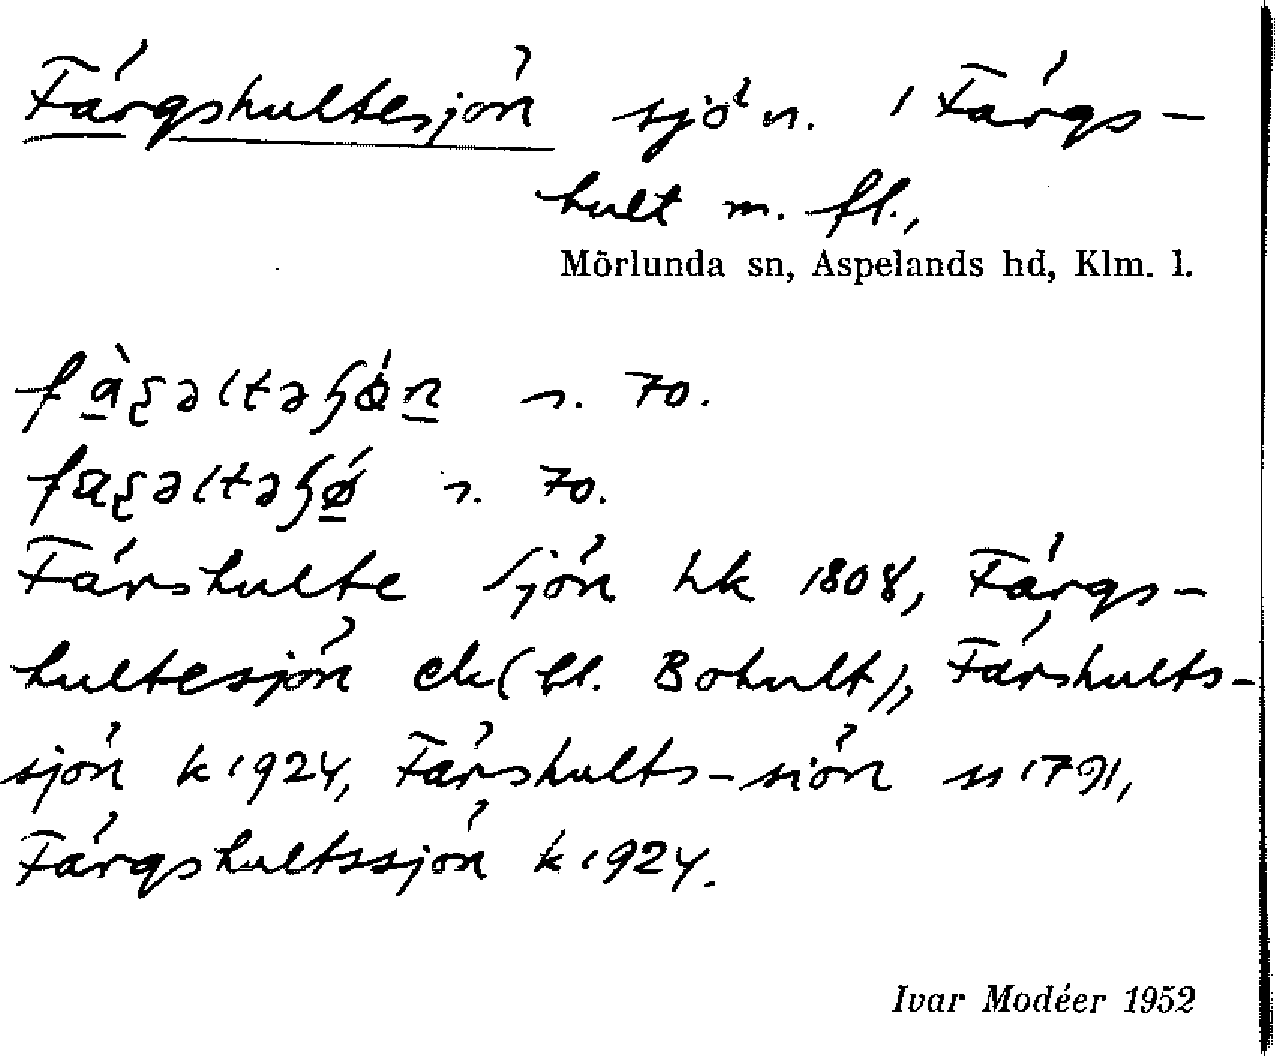 Fårgshultesjön sjö n. / Fårgs-
hult m. fl.,
Mörlunda sn, Aspelands hd, Klm. l.
n. 70.
n. 70.
Fårshulte Sjön hk 1808, Fårgs-
hultesjön ek (bl. Bohult), Fårshults-
sjön k 1924, Fårshults-siön ss 1791,
Fårgshultssjön k 1924.
Ivar Modéer 1952